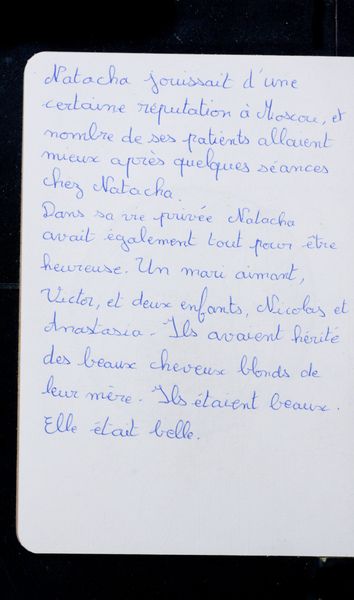 Natacha jouissait d'une
certaine réputation à Moscou, et
nombre de ses patients allaient
mieux après quelques séances
chez Natacha.
Dans sa vie privée Natacha
avait également tout pour être
heureuse. Un mari aimant,
Victor, et deux enfants, Nicolas et
Anastasia. Ils avaient hérité
des beaux cheveux blonds de
leur mère. Ils étaient beaux.
Elle était belle.